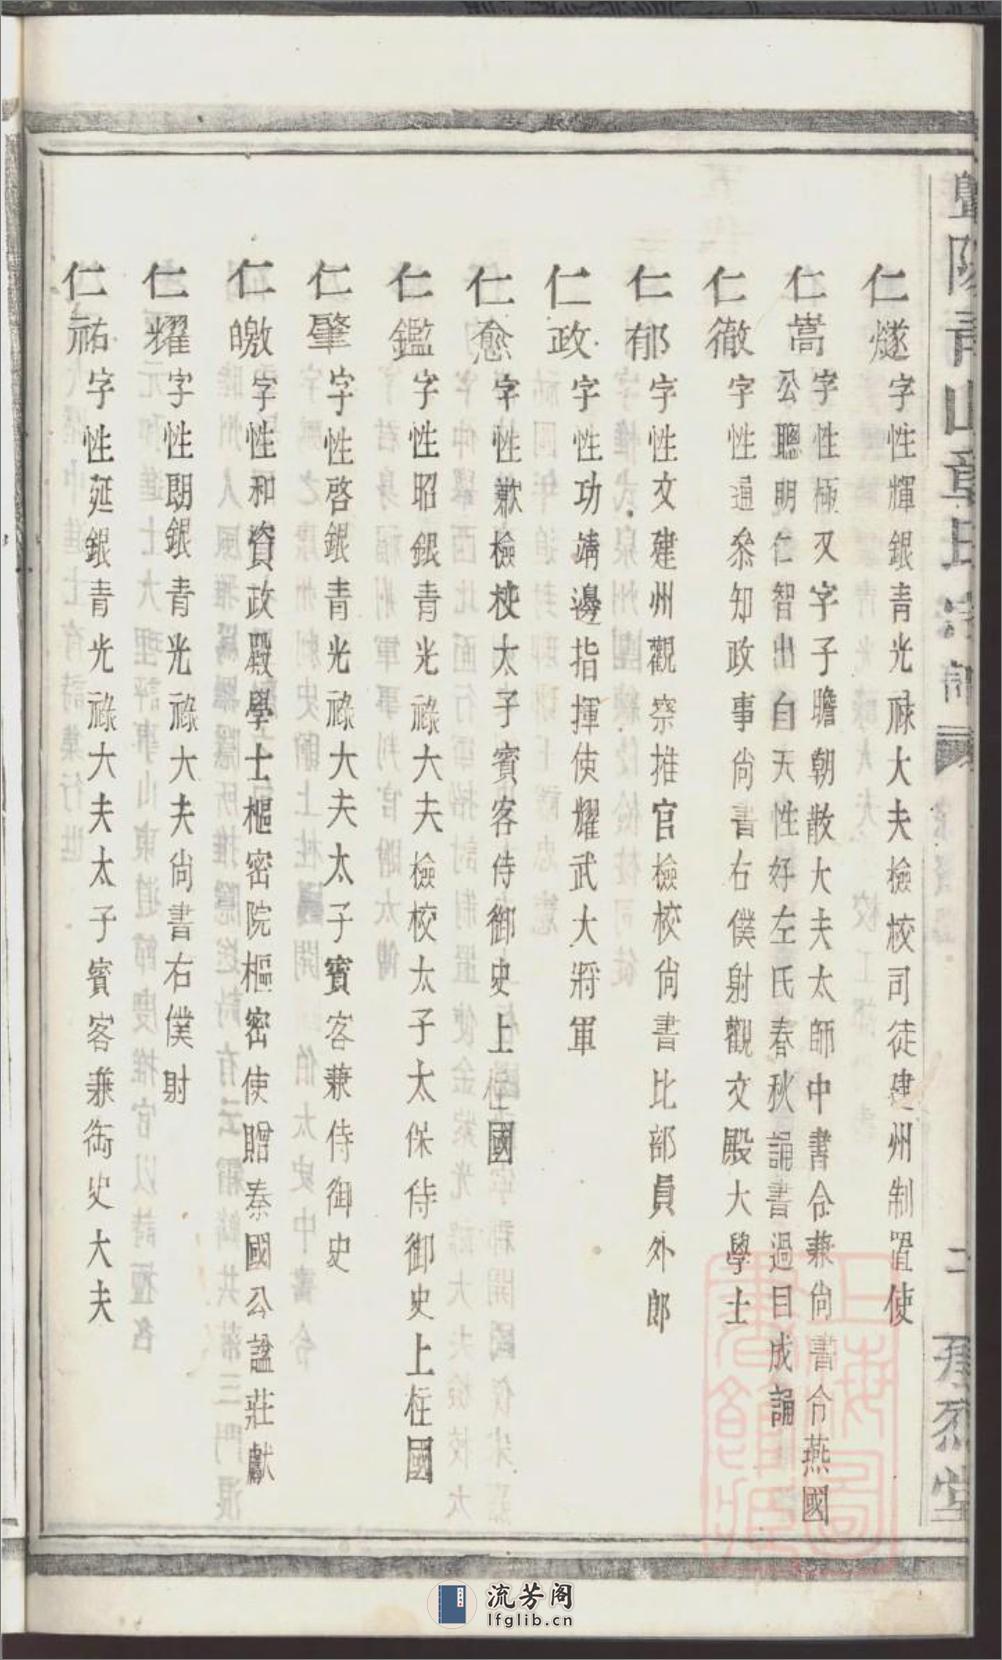 暨陽青山章氏宗譜
二
仁燧字性輝銀青光祿大夫檢校司徒建州制置使
仁嵩字性極又字子瞻朝散大夫太師中書令兼尚書令燕國
公聰明仁智出自天性好左氏春秋誦書過目成誦
仁徹字性通叅知政事尚書右僕射觀文殿大學士
仁郁字性文建州觀察推官檢校尚書比部員外郎
仁政字性功靖邊指揮使耀武大將軍
仁愈字性歉檢校太子賓客侍御史上柱國
仁鑑字性昭銀青光祿大夫檢校太子太保侍御史上柱國
仁肇字性啓銀青光祿大夫太子賓客兼侍御史
仁皦字性和資政殿學士樞密院樞密使贈秦國公諡莊獻
仁耀字性朗銀青光祿大夫尚書右僕射
仁祐字性延銀青光祿大夫太子賓客兼御史大夫
流芳阁
lfglib.cn